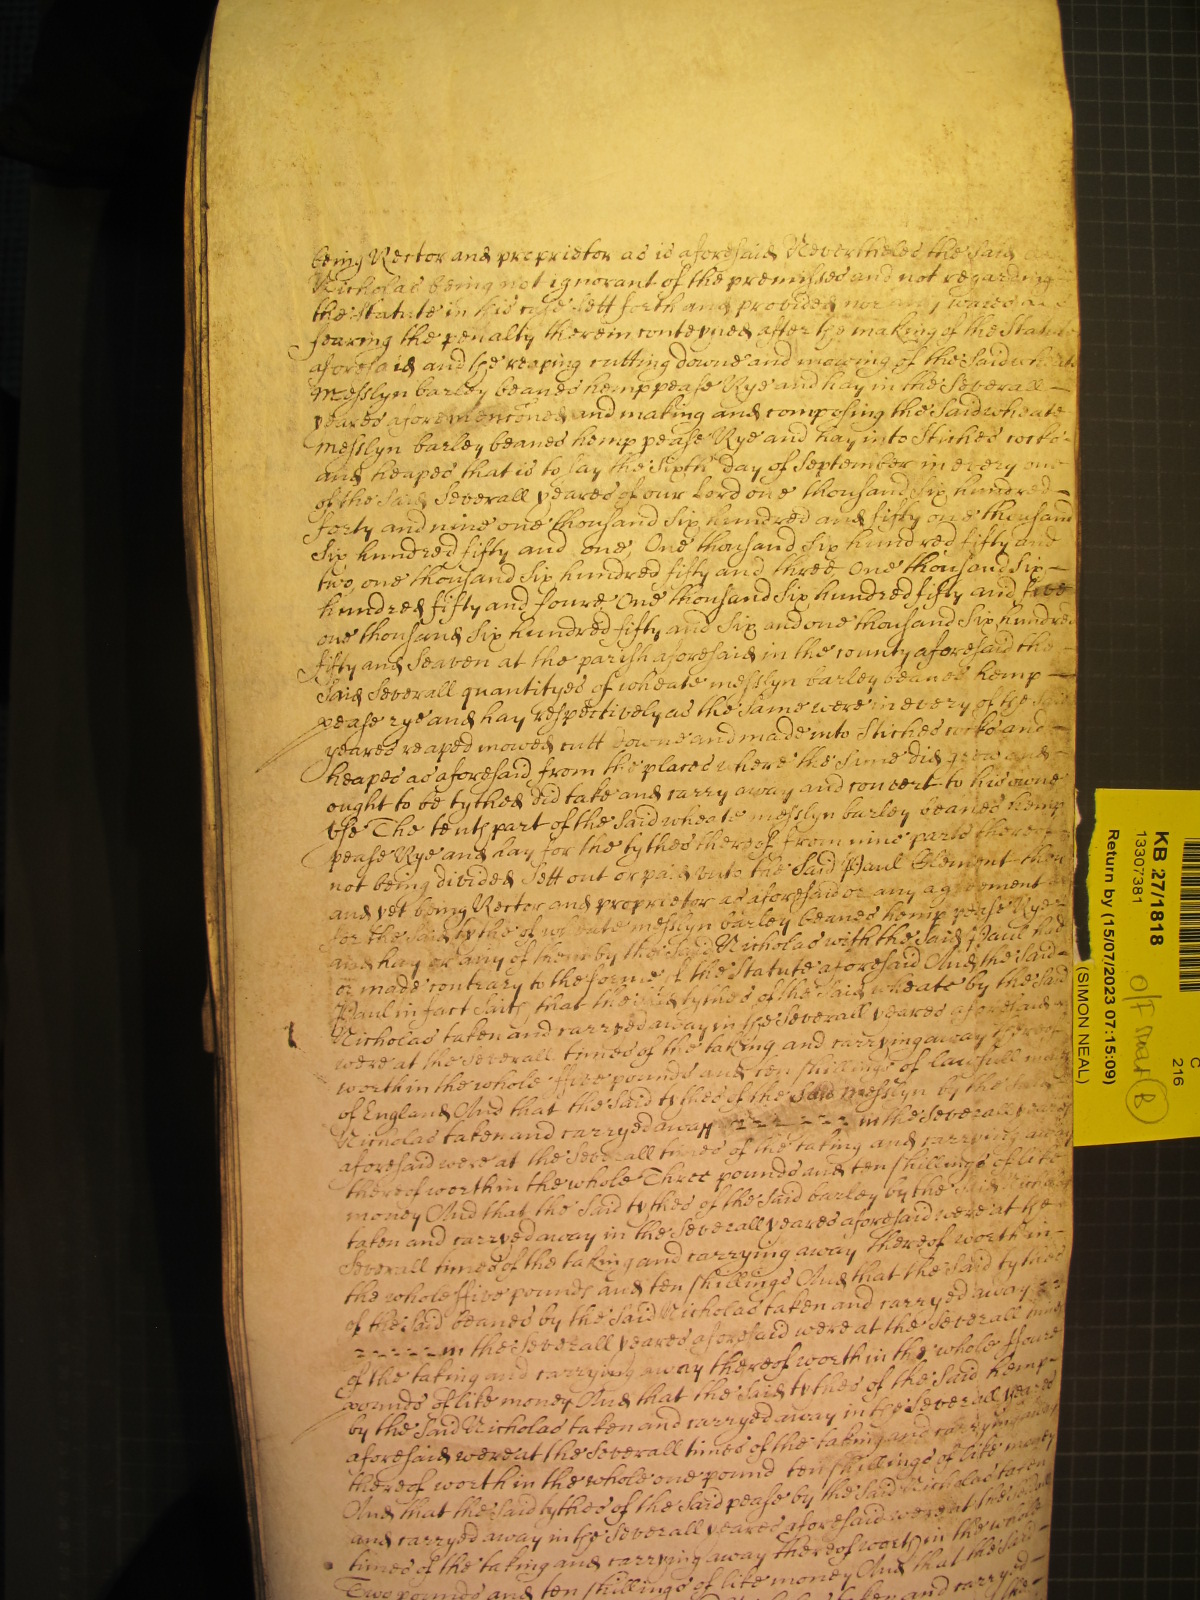 being Rector and proprietor as is aforesaid Nevertheles the said
Nicholas being not ignorant of the premisses and not regarding
the Statute in this case sett forth and provided nor any wayes
fearing the penalty therein conteyned after the making of the Statute
aforesaid and the reaping cutting downe and mowing of the said wheate
Messlyn barley beanes hemp pease Rye and hay in the severall
yeares aforementioned and making and composing the said wheate
messlyn barley beanes hemp pease Rye and hay into Stiches cocks
and heapes that is to say the sixth day of September in every one
of the said severall yeares of our Lord one thousand six hundred
forty and nine one thousand six hundred and fifty one thousand
six hundred fifty and one, One thousand six hundred fifty and
two, one thousand six hundred fifty and three One thousand six
hundred fifty and foure One thousand six hundred fifty and five
one thousand six hundred fifty and six and one thousand six hundred
fifty and seaven at the parish aforesaid in the county aforesaid the
said severall quantityes of wheate messlyn barley beanes hemp
pease rye and hay respectively as the same were in every of the said
yeares reaped mowed cutt downe and made into Stiches cocks and
heapes as aforesaid from the places where the same did grow and
ought to be tythed did take and carry away and convert to his owne
use The tenth part of the said wheate messlyn barley beanes hemp
pease Rye and hay for the tythes thereof from nine parts thereof
not being divided sett out or paid unto the said Paul Clement then
and yet being Rector and proprietor as aforesaid or any agreement
for the said tythe of wheate messlyn barley beanes hemp pease Rye
and hay or any of them by the said Nicholas with the said Paul had
or made contrary to the forme of the Statute aforesaid And the said
Paul in fact saith that the said tythes of the said wheate by the said
Nicholas taken and carryed away in the severall yeares aforesaid
were at the severall times of the taking and carrying away thereof
worth in the whole ffive pounds and ten shillings of lawfull money
of England And that the said tythes of the said messlyn by the said
Nicholas taken and carryed away in the severall yeares
aforesaid were at the severall times of the taking and carrying away
thereof worth in the whole Three pounds and ten shillings of like
money And that the said tythes of the said barley by the said Nicholas
taken and carryed away in the severall yeares aforesaid were at the
severall times of the taking and carrying away thereof worth in
the whole ffive pounds and ten shillings And that the said tythes
of the said beanes by the said Nicholas taken and carryed away
in the severall yeares aforesaid were at the severall times
of the taking and carrying away thereof worth in the whole ffoure
pounds of like money And that the said tythes of the said hemp
by the said Nicholas taken and carryed away in the severall yeares
aforesaid were at the severall times of the taking and carrying away
thereof worth in the whole one pound ten shillings of like money
And that the said tythes of the said pease by the said Nicholas taken
and carryed away in the severall yeares aforesaid were at the severall
times of the taking and carrying away thereof worth in the whole
Two pounds and ten shillings of like money And that the said
taken and carryed
KB 27/1818
13307381
Return by (15/07/2023 07:15:09)
(SIMON NEAL)
C
216
B